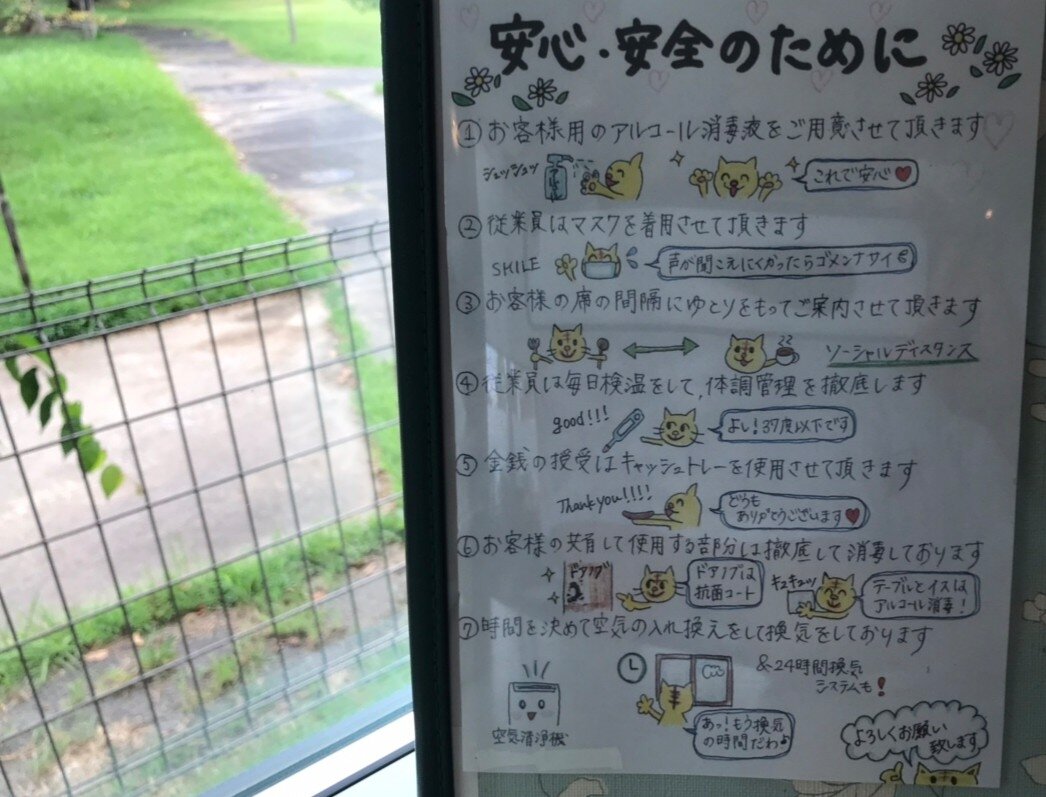 安心・安全のために
①お客様用のアルコール消毒液をご用意させて頂きます
シュッシュッ
これで安心♥
②従業員はマスクを着用させて頂きます
SMILE
声が聞こえにくかったらゴメンナサイ
③お客様の席の間隔にゆとりをもってご案内させて頂きます
ソーシャルディスタンス
④従業員は毎日検温をして、体調管理を徹底します
good!!!
よし!37度以下です
⑤金銭の授受はキャッシュトレーを使用させて頂きます
Thank you!!!!
どうも
ありがとうございます♥
⑥お客様の共有して使用する部分は徹底して消毒しております
ドアノブ
ドアノブは
抗菌コート
キュキュッ
テーブルとイスは
アルコール消毒!
⑦時間を決めて空気の入れ換えをして換気をしております
&24時間換気
システムも!
空気清浄機
あっ!もう換気
の時間だわ♪
よろしくお願い
致します